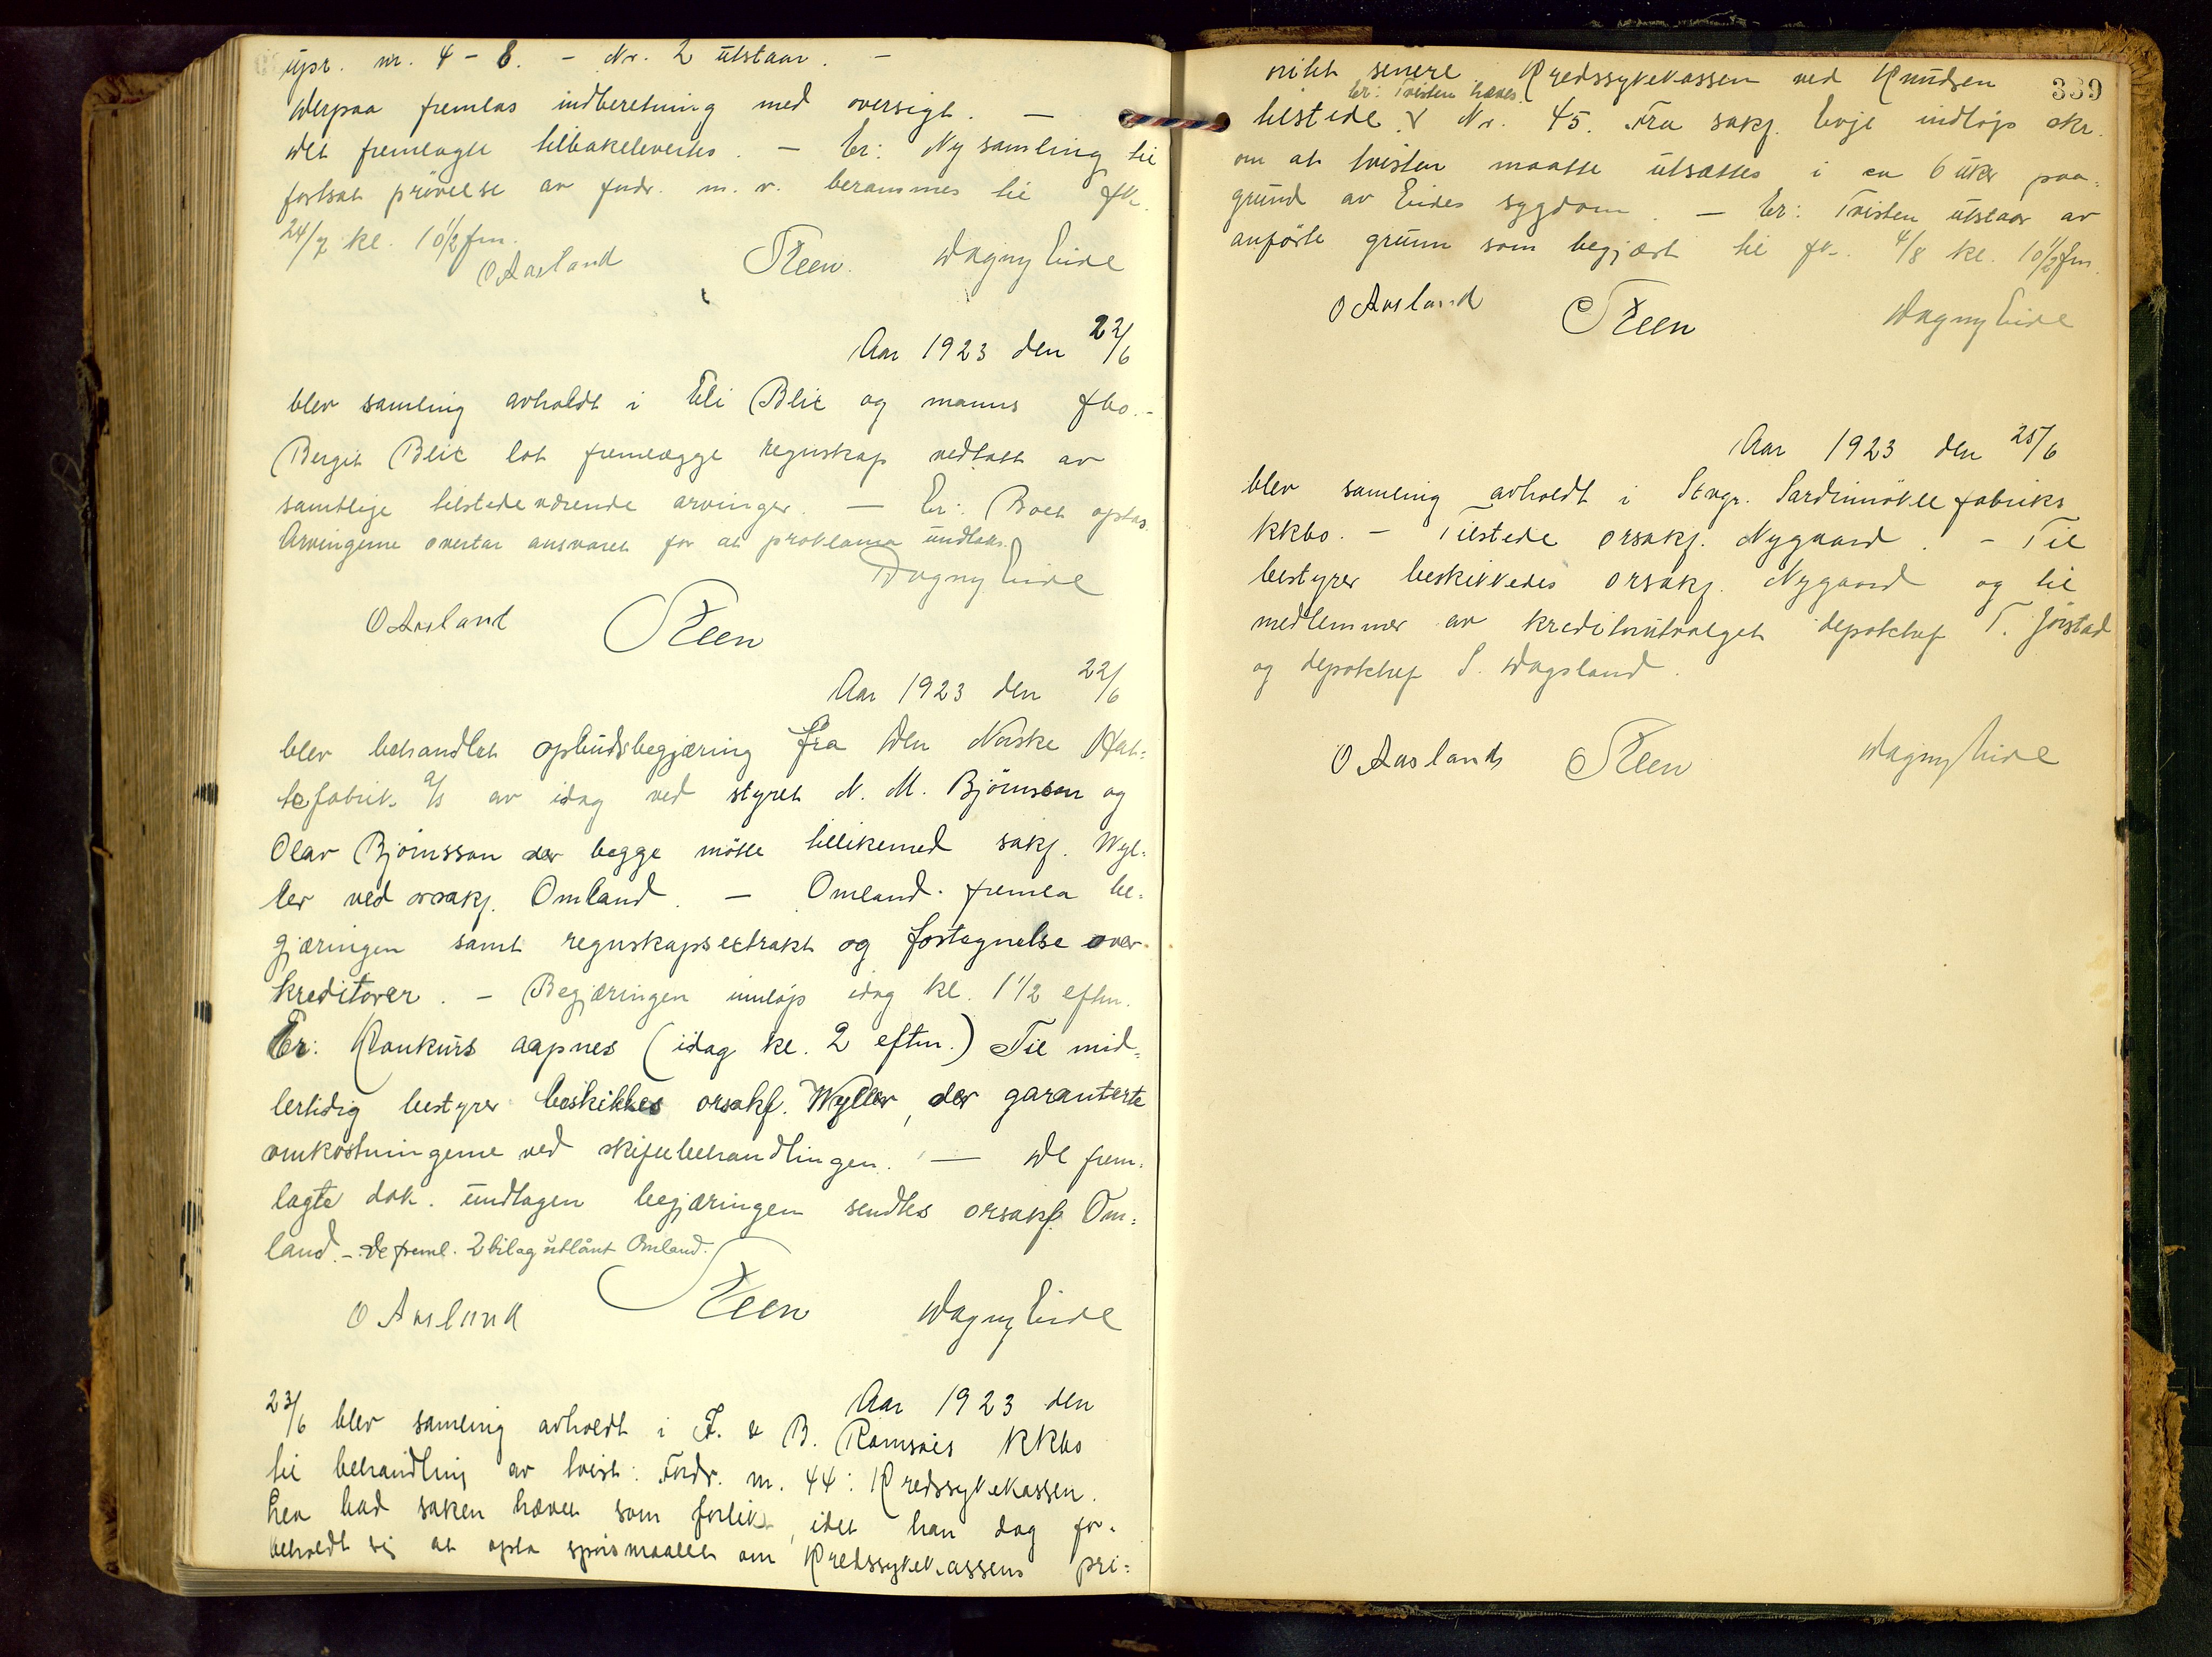 upr. nr. 4 - 8. - Nr. 2 utstaar. -
Derpaa fremlas indberetning med oversigt. -
Det fremlagte tilbakelevertes. - Er: Ny samling til
fortsat prøvelse av fordr. m. v. berammes til fk.
24/7 kl. 10 1/2 fm.
O Aasland Steen Dagny Eide
Aar 1923 den 22/6
blev samling avholdt i Eli Blix og manns fbo. -
Bergit Blix lot fremlægge regnskap vedtatt av
samtlige tilstedeværende arvinger. - Er: Boet optas.
Arvingerne overtar ansvaret for at proklama undlates.
Dagny Eide
O Aasland Steen
Aar 1923 den 22/6
blev behandlet opbudsbegjæring fra Den Norske Hat=
tefabrik A/S av idag ved styret N. M. Bjørnsson og
Olav Bjørnsson der begge møtte tillikemed sakf. Wyl=
ler ved orsakf. Omland. - Omland fremla be=
gjæringen samt regnskapsextrakt og fortegnelse over
kreditorer. - Begjæringen innløp idag kl. 1 1/2 eftm.
Er: Konkurs aapnes (idag kl. 2 eftm.) Til mid=
lertidig bestyrer beskikkes orsakf. Wyller, der garanterte
omkostningerne ved skiftebehandlingen. - De frem=
lagte dok. undtagen begjæringen sendtes orsakf. Om=
land. - De freml. 2 bilag utlånt Omland.
O Aasland Steen Dagny Eide
Aar 1923 den
23/6 blev samling avholdt i F. & B. Ramsvis KKbo
til behandling av tvist: Fordr. nr. 44: Kredssykekassen.
Lea bad saken hævet som forlikt, idet han dog for=
beholdt sig at opta spørsmaalet om Kredssykekassens pri=
339
oritet senere. Kredssykekassen ved Knudsen
Er: Tvisten hæves.
tilstede. V Nr. 45. Fra sakf. Eoje indløp skr.
om at tvisten maatte utsættes i ca 6 uker paa=
grund av Eides sygdom. - Er: Tvisten utstaar av
anførte grunn som begjært til fk. 4/8 kl. 10 1/2 fm.
O Aasland Steen Dagny Eide
Aar 1923 den 25/6
blev samling avholdt i Stvgr. Sardinnøkle fabriks
KKbo. - Tilstede orsakf. Nygaard. - Til
bestyrer beskikkedes orsakf. Nygaard og til
medlemmer av kreditorutvalget depotchef T. Jørstad
og depotchef S. Dagsland.
O Aasland Steen Dagny Eide